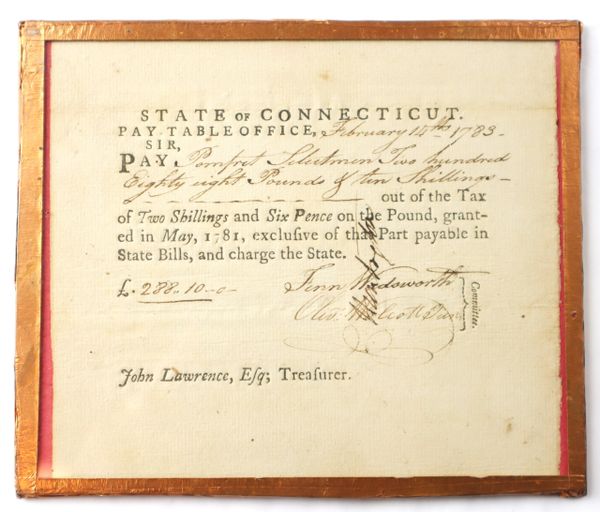 STATE OF CONNECTICUT.
PAY-TABLE OFFICE, February 14th 1783-
SIR,
PAY Pomfret Selectmen Two hundred
Eighty eight Pounds & ten Shillings-
out of the Tax
of Two Shillings and Six Pence on the Pound, grant-
ed in May, 1781, excluſive of that Part payable in
State Bills, and charge the State.
£. 288. 10.-0-
Fenn Wadsworth
Oliv. Wolcott Jun
Committee.
John Lawrence, Eſq; Treaſurer.